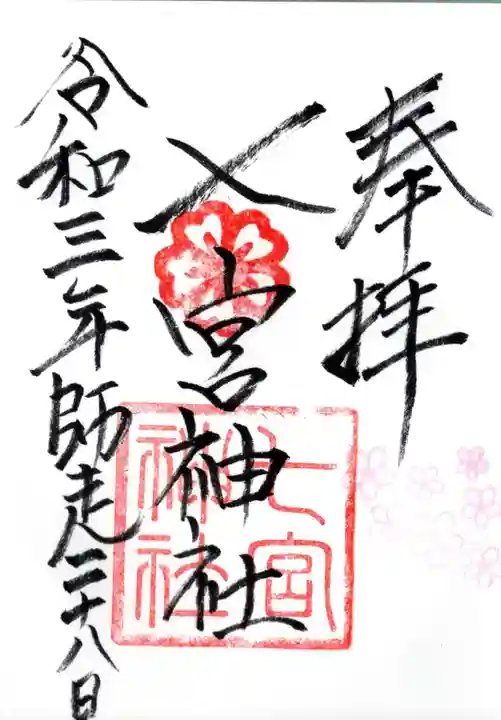 奉拝
七宮神社
七宮
神社
令和三年師走二十八日